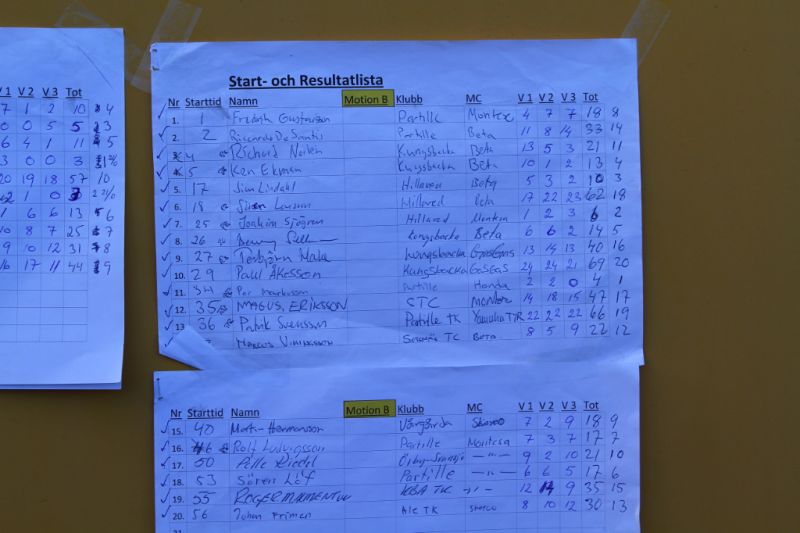 V1 V2 V3 Tot
7 1 2 10 4
0 0 5 5 3
6 4 1 11 5
3 0 0 3
20 19 18 57 10
1 0
1 6 6 13 6
10 8 7 25 7
9 10 12 31 8
16 17 11 44 9
Start- och Resultatlista
Nr Starttid Namn Motion B Klubb MC V 1 V 2 V 3 Tot
1. 1 Fredrik Gustavsson Partille Montesa 4 7 7 18 8
2. 2 Riccardo De Santis Partille Beta 11 8 14 33 14
3. 4 Richard Norlén Kungsbacka Beta 13 5 3 21 11
4. 5 Ken Ekman Kungsbacka Beta 10 1 2 13 4
5. 17 Jim Lindahl Hillared Beta 5 3 2 10 3
6. 18 Larsson Hillared Beta 17 22 23 62 18
7. 25 Joakim Sjögren Hillared Montesa 1 2 3 6 2
8. 26 Benny Kungsbacka Beta 6 6 2 14 5
9. 27 Torbjörn Kungsbacka GasGas 13 14 13 40 16
10. 29 Paul Åkesson Kungsbacka GASGAS 24 24 21 69 20
11. 34 Per Markusson Partille Honda 2 2 0 4 1
12. 35 MAGUS, ERIKSSON STC Montesa 14 18 15 47 17
13 36 Patrik Svensson Partille TK Yamaha TYR 22 22 22 66 19
Marcus TC Beta 8 5 9 22 12
Nr Starttid Namn Motion B Klubb MC V 1 V 2 V 3 Tot
15. 40 Hermansson Vårgårda 7 2 9 18 9
16. 46 Rolf Ludvigsson Partille Montesa 7 3 7 17 7
17. 50 Pelle Örby- -"- 9 2 10 21 10
18. 53 Sören Löf Partille -"- 6 6 5 17 6
19. 55 ROGER KBA TK -"- 12 14 9 35 15
20. 56 Johan Friman Ale TK 8 10 12 30 13